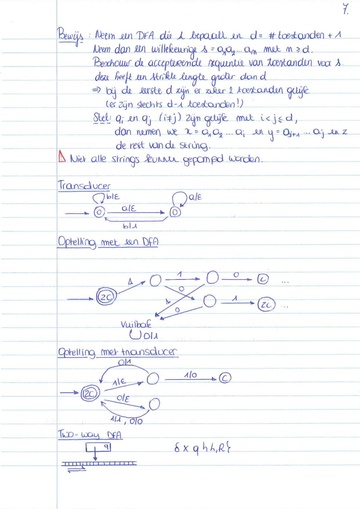 7.
Bewijs : Neem een DFA die L bepaalt en d = # toestanden + 1
Neem dan een willekeurige s = a₁a₂...aₘ met m > d.
Beschouw de accepterende sequentie van toestanden voor s
deze heeft een strikte lengte groter dan d
⇒ bij de eerste d zijn er zeker 2 toestanden gelijk
(er zijn slechts d-1 toestanden!)
Stel qᵢ en qⱼ (i≠j) zijn gelijk met i<j≤d,
dan nemen we x = a₁a₂...aᵢ en y = aᵢ₊₁...aⱼ en z
de rest van de string.
Niet alle strings kunnen gepompt worden.
Transducer
b/ε
a/ε
a/ε
b/1
Optelling met een DFA
1
0
1
0
C
...
0
0
1
2C
...
2C
Vuilbak
0,1
Optelling met transducer
0/1
1/ε
1/0
C
2C
0/ε
1/1, 0/0
Two-way DFA
q